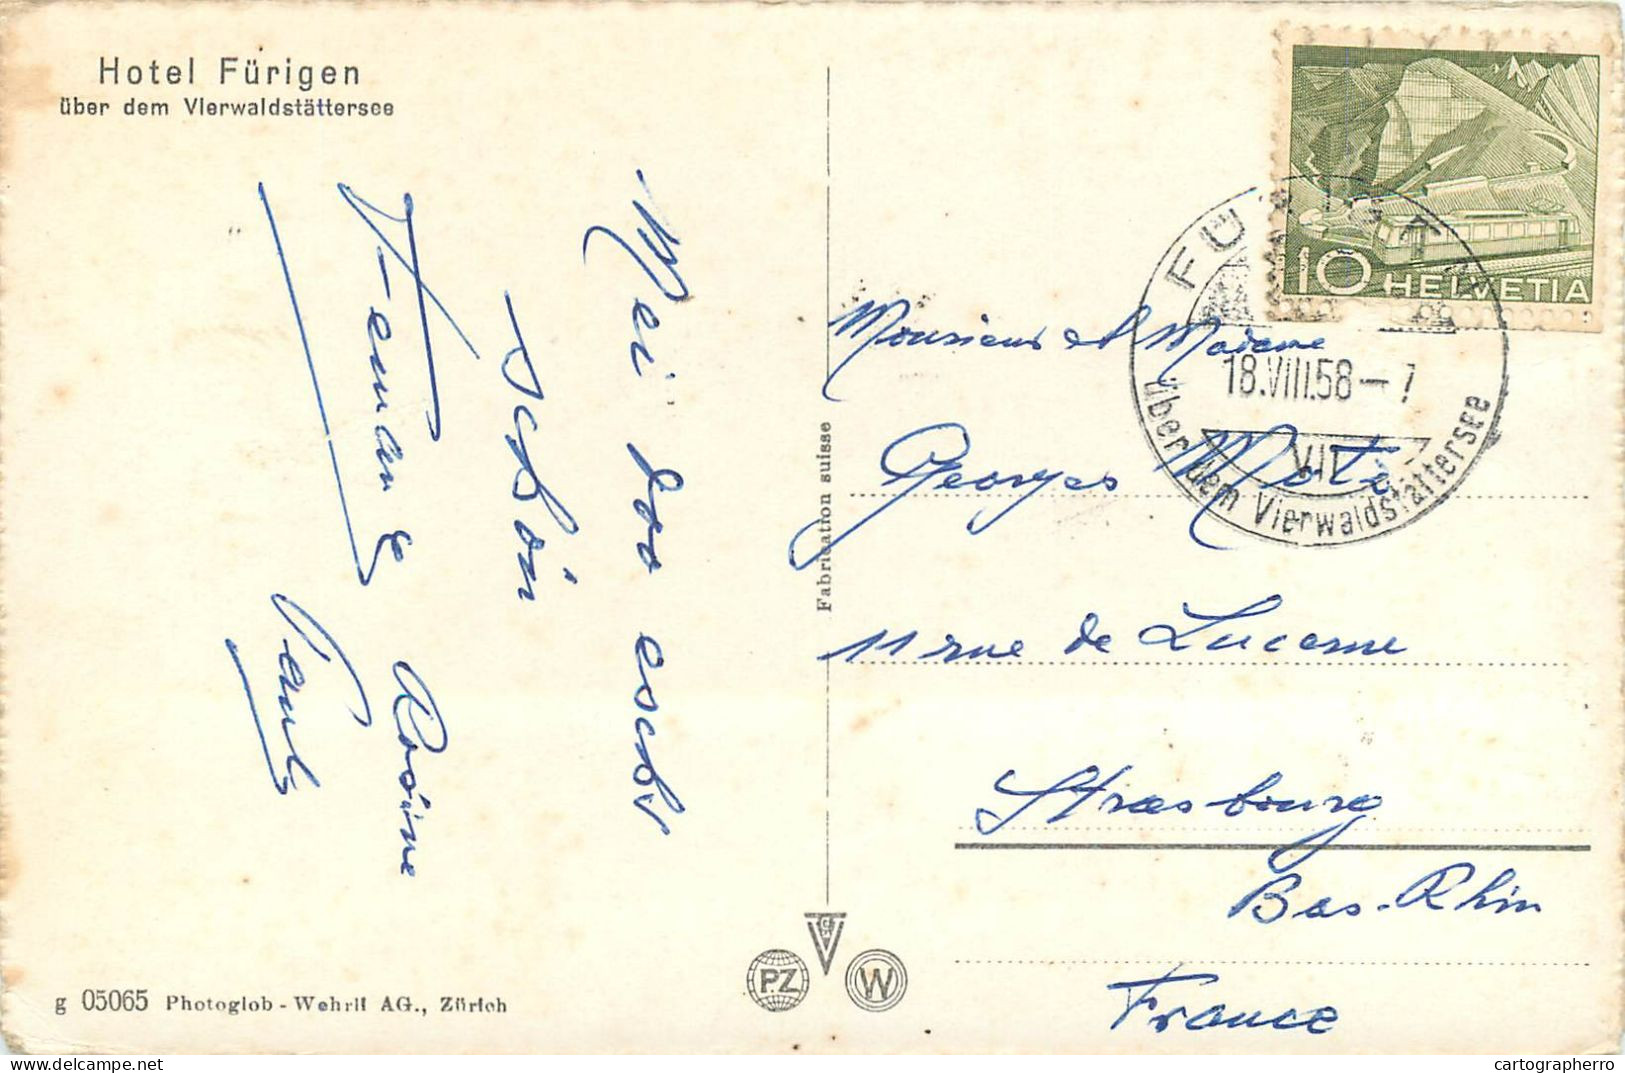 Hotel Fürigen
über dem Vierwaldstättersee
Mei doo esch's
schön
Fernand &
Rosine
Paul
Fabrication suisse
10 HELVETIA
FÜRIGEN
18.VIII.58 - 7
VII
über dem Vierwaldstättersee
Monsieur et Madame
Georges Motz
11 rue de Lucerne
Strasbourg
Bas-Rhin
France
PZ
W
g 05065 Photoglob - Wehrli AG., Zürich
cartographerro